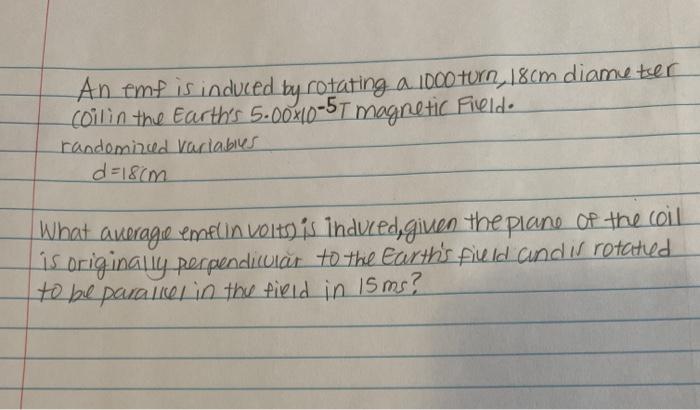 An emf is induced by rotating a 1000 turn, 18cm diameter
coil in the Earth's 5.00x10-5T magnetic Field.
randomized variables
d=18cm
What average emf(in volts) is induced, given the plane of the coil
is originally perpendicular to the Earth's field and is rotated
to be parallel in the field in 15ms?